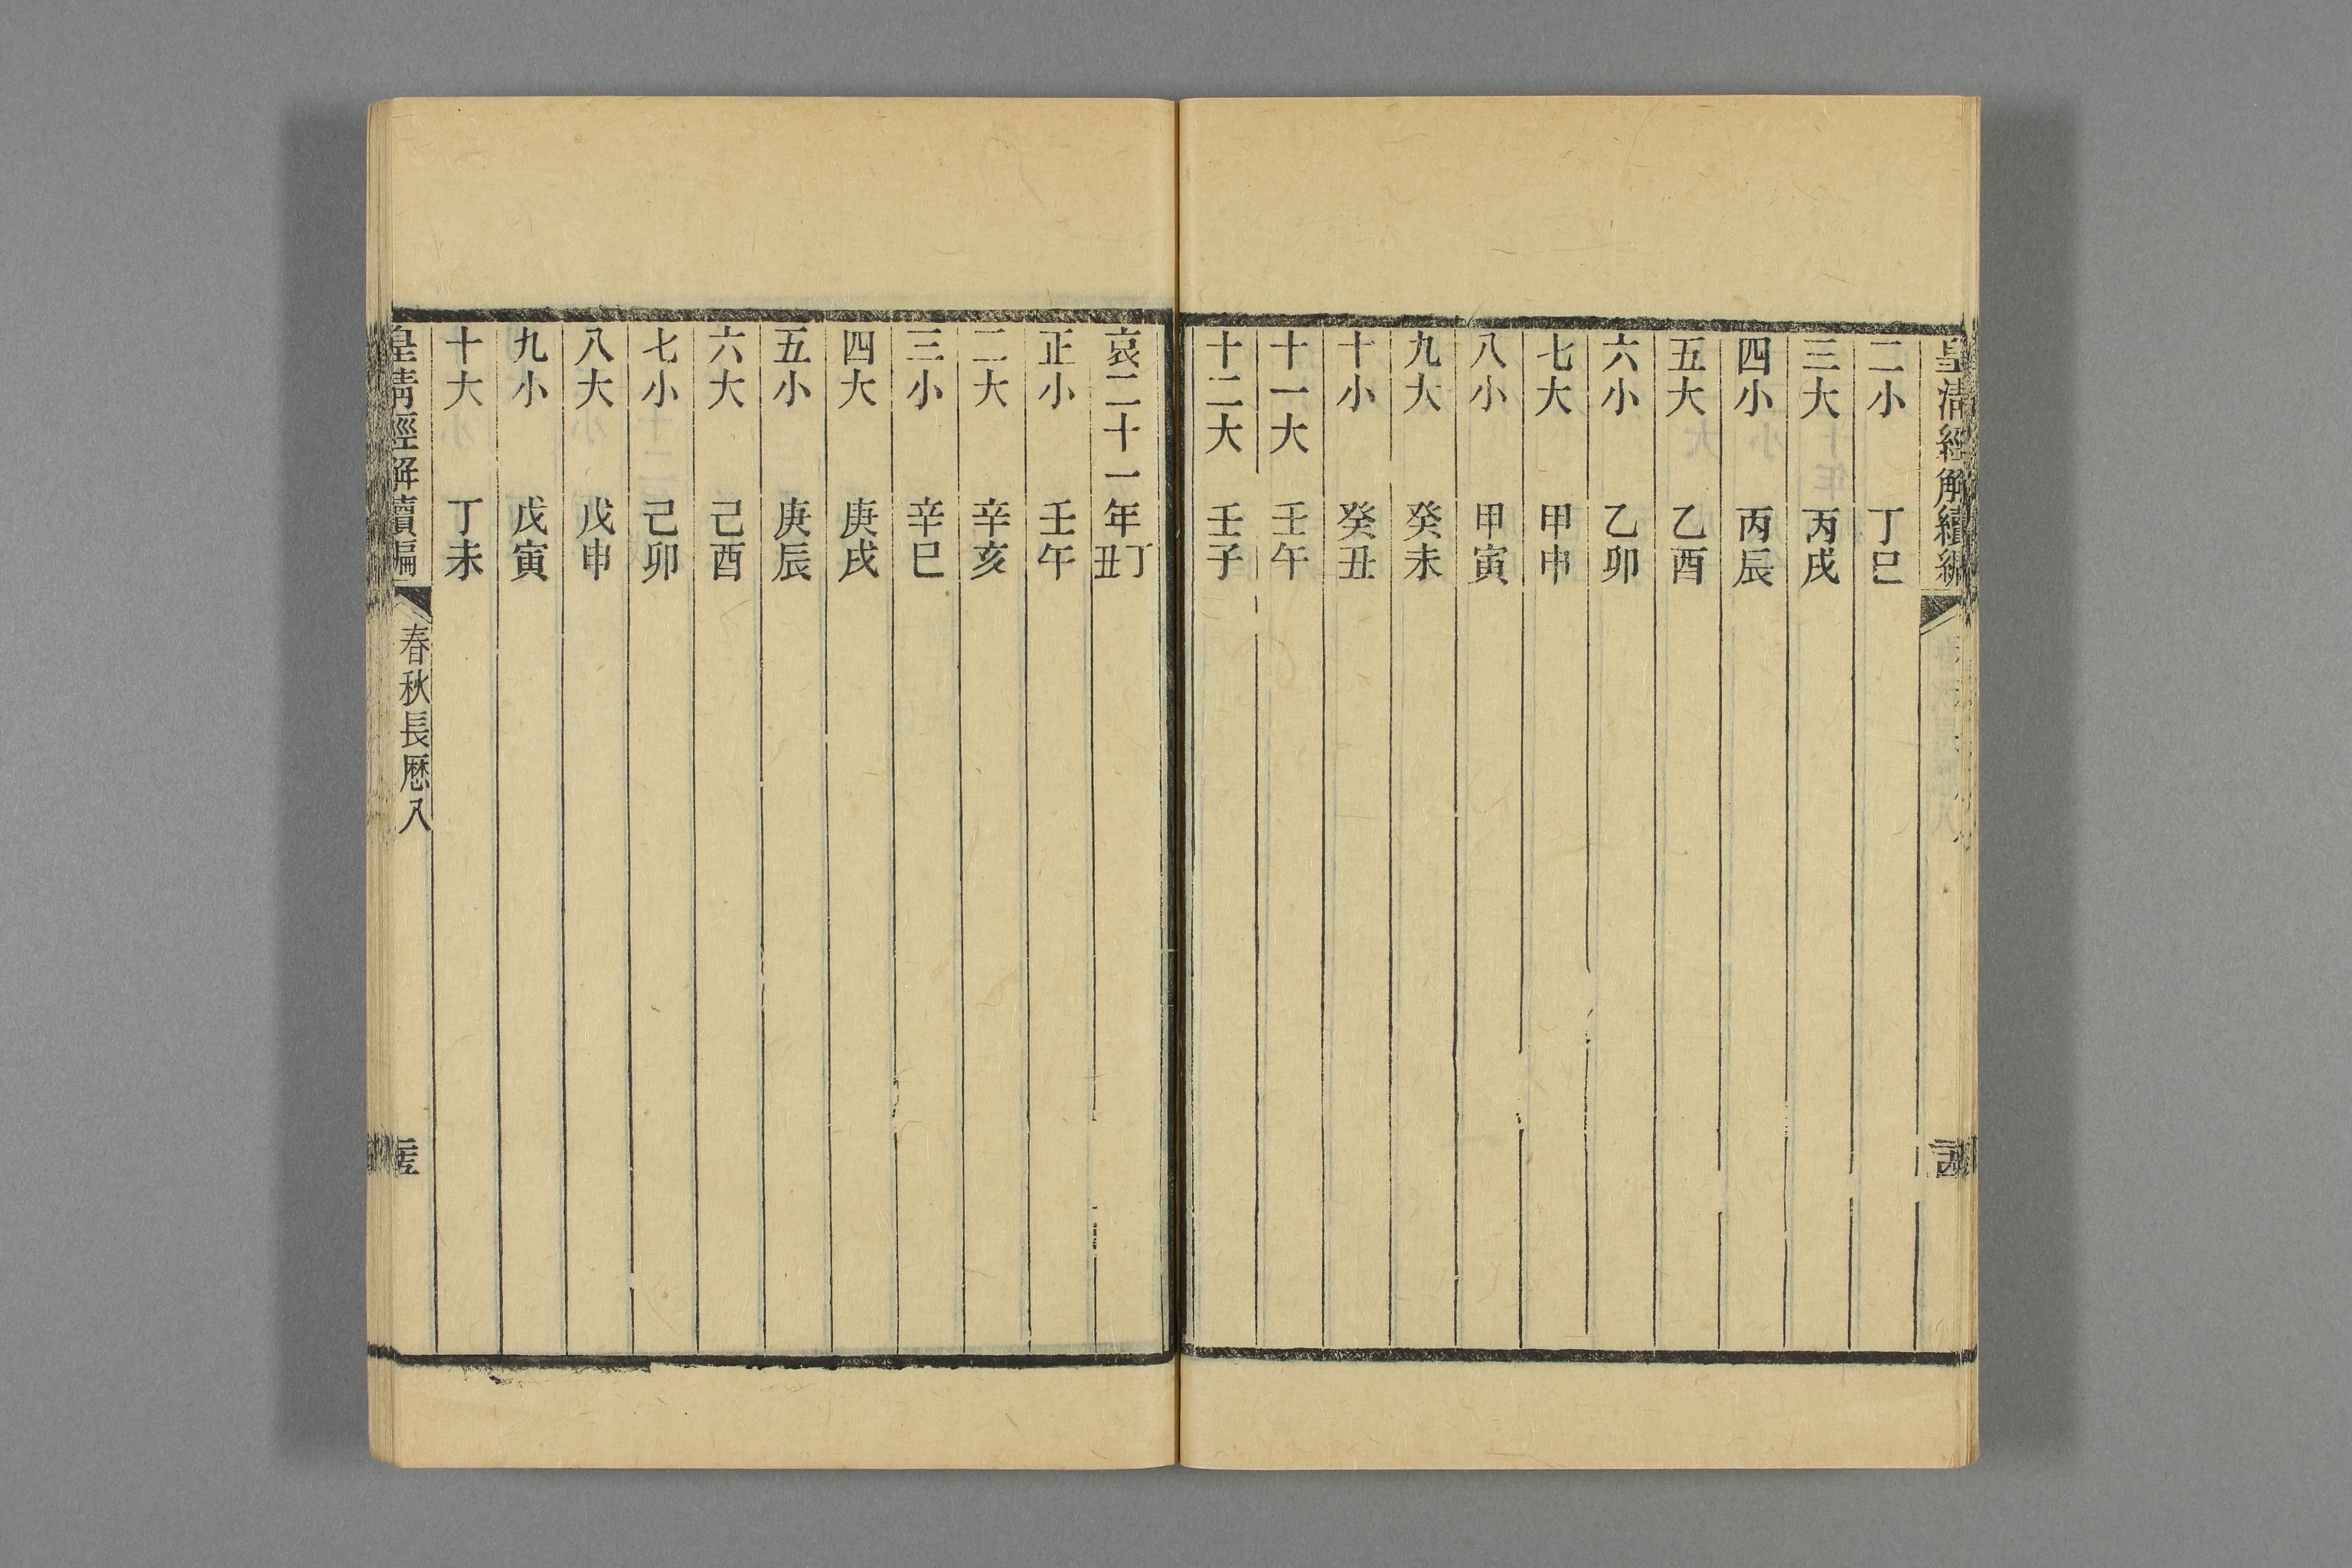 皇清經解續編
二小 丁巳
三大 丙戌
四小 丙辰
五大 乙酉
六小 乙卯
七大 甲申
八小 甲寅
九大 癸未
十小 癸丑
十一大 壬午
十二大 壬子
哀二十一年丁丑
正小 壬午
二大 辛亥
三小 辛巳
四大 庚戌
五小 庚辰
六大 己酉
七小 己卯
八大 戊申
九小 戊寅
十大 丁未
皇清經解續編 春秋長厯八